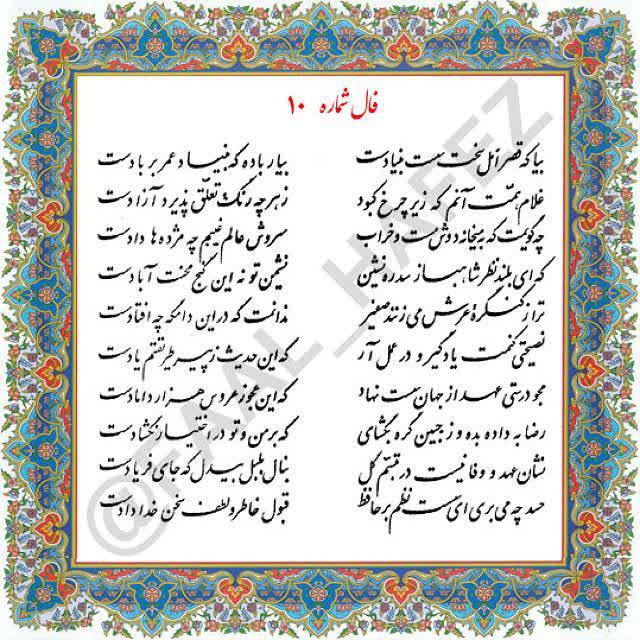 فال شماره ۱۰
بیا که قصر امل سخت سست بنیادست بیار باده که بنیاد عمر بر بادست
غلام همت آنم که زیر چرخ کبود ز هر چه رنگ تعلق پذیرد آزادست
چه گویمت که به میخانه دوش مست و خراب سروش عالم غیبم چه مژده‌ها دادست
که ای بلند نظر شاهباز سدره نشین نشیمن تو نه این کنج محنت آبادست
ترا ز کنگرهٔ عرش می‌زنند صفیر ندانمت که در این دامگه چه افتادست
نصیحتی کنمت یاد گیر و در عمل آر که این حدیث ز پیر طریقتم یادست
مجو درستی عهد از جهان سست نهاد که این عجوز عروس هزار دامادست
رضا به داده بده وز جبین گره بگشای که بر من و تو در اختیار نگشادست
نشان عهد و وفا نیست در تبسم گل بنال بلبل بیدل که جای فریادست
حسد چه می‌بری ای سست نظم بر حافظ قبول خاطر و لطف سخن خدادادست
@FAAL_HAFEZ